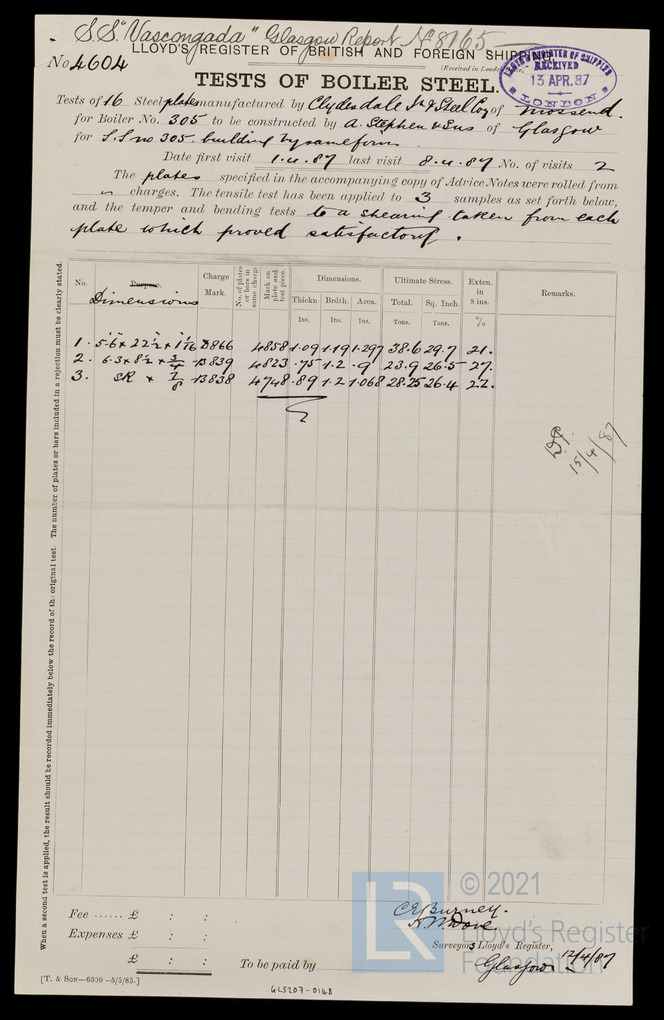 S.S. "Vascongada" Glasgow Report No 8165
LLOYD'S REGISTER OF BRITISH AND FOREIGN SHIPPING.
No 4604
(Received in London
LLOYD'S REGISTER OF SHIPPING
RECEIVED
13 APR. 87
LONDON
TESTS OF BOILER STEEL.
Tests of 16 Steel plates manufactured by Clydesdale Ir & Steel Coy of Mossend.
for Boiler No. 305 to be constructed by A. Stephen & Sons of Glasgow
for S.S no 305. building by same firm
Date first visit 1.4.87 last visit 8.4.87 No. of visits 2
The plates specified in the accompanying copy of Advice Notes were rolled from
charges. The tensile test has been applied to 3 samples as set forth below,
and the temper and bending tests to a shearing taken from each
plate which proved satisfactory.
No. Purpose. Charge Mark. No. of plates or bars in same charge Mark on plate and test piece. Dimensions. Ultimate Stress. Exten. in 8 ins. Remarks.
Dimensions
Thickn Brdth. Area. Total. Sq. Inch.
Ins. Ins. Ins. Tons. Tons. %
1. 5-6 x 22½ x 1 1/16 B866 4858 1.09 1.19 1.297 38.6 29.7 21.
2. 6.3 x 8½ x 3/4 B839 4823 .75 1.2 .9 23.9 26.5 27.
3. SR x 7/8 B838 4748 .89 1.2 1.068 28.25 26.4 22.
15/4/87
When a second test is applied, the result should be recorded immediately below the record of the original test. The number of plates or bars included in a rejection must be clearly stated.
Fee ...... £ : :
Expenses £ : :
£ : :
To be paid by
C E Burney.
H. W. Dove
Surveyors Lloyd's Register,
Glasgow 12/4/87
[T. & Son—6000—5/5/85.]
GLS207-0148
LR
© 2021
Lloyd's Register
Foundation